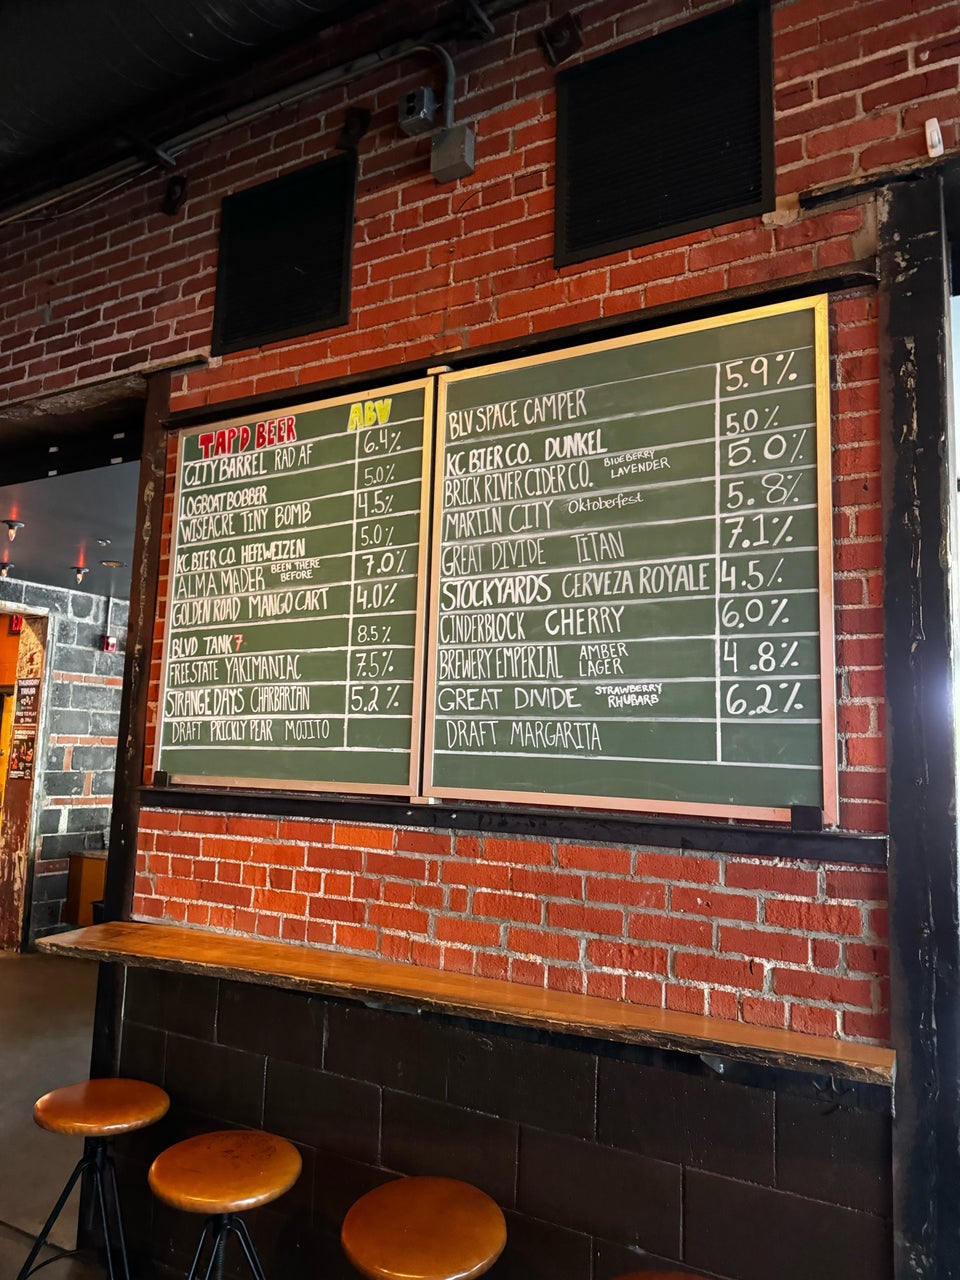 TAP'D BEER ABV
CITY BARREL RAD AF 6.4%
LOGBOAT BOBBER 5.0%
WISEACRE TINY BOMB 4.5%
KC BIER CO. HEFEWEIZEN 5.0%
ALMA MADER BEEN THERE BEFORE 7.0%
GOLDEN ROAD MANGO CART 4.0%
BLVD TANK 7 8.5%
FREESTATE YAKIMANIAC 7.5%
STRANGE DAYS CHARBARIAN 5.2%
DRAFT PRICKLY PEAR MOJITO
BLV SPACE CAMPER 5.9%
KC BIER CO. DUNKEL 5.0%
BRICK RIVER CIDER CO. BLUEBERRY LAVENDER 5.0%
MARTIN CITY Oktoberfest 5.8%
GREAT DIVIDE TITAN 7.1%
STOCKYARDS CERVEZA ROYALE 4.5%
CINDERBLOCK CHERRY 6.0%
BREWERY EMPERIAL AMBER LAGER 4.8%
GREAT DIVIDE STRAWBERRY RHUBARB 6.2%
DRAFT MARGARITA
THURSDAY
TRIVIA